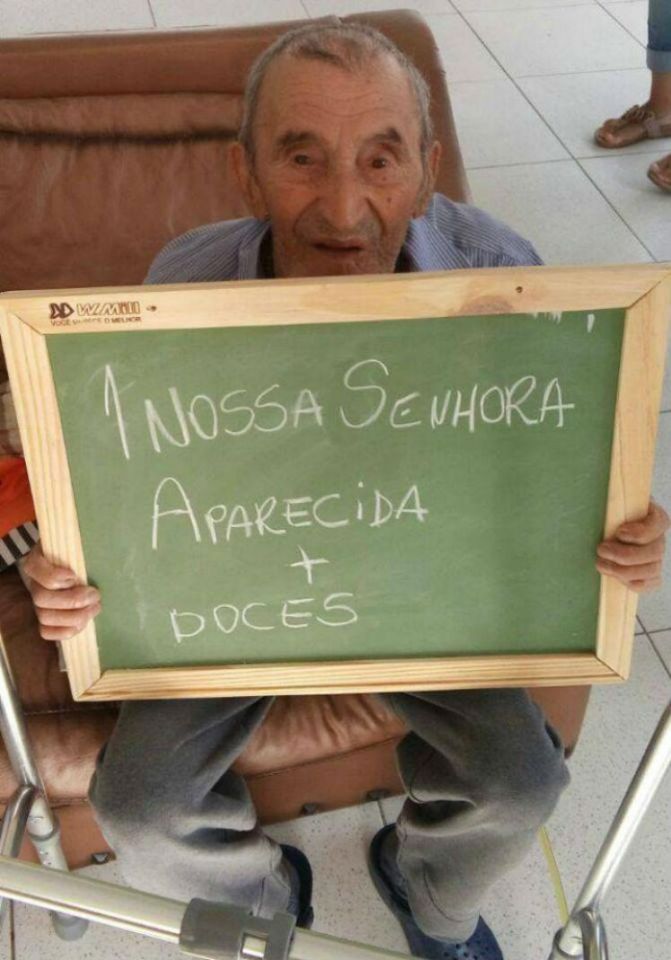 WMill
VOCÊ MERECE O MELHOR
1 NOSSA SENHORA
APARECIDA
+
DOCES